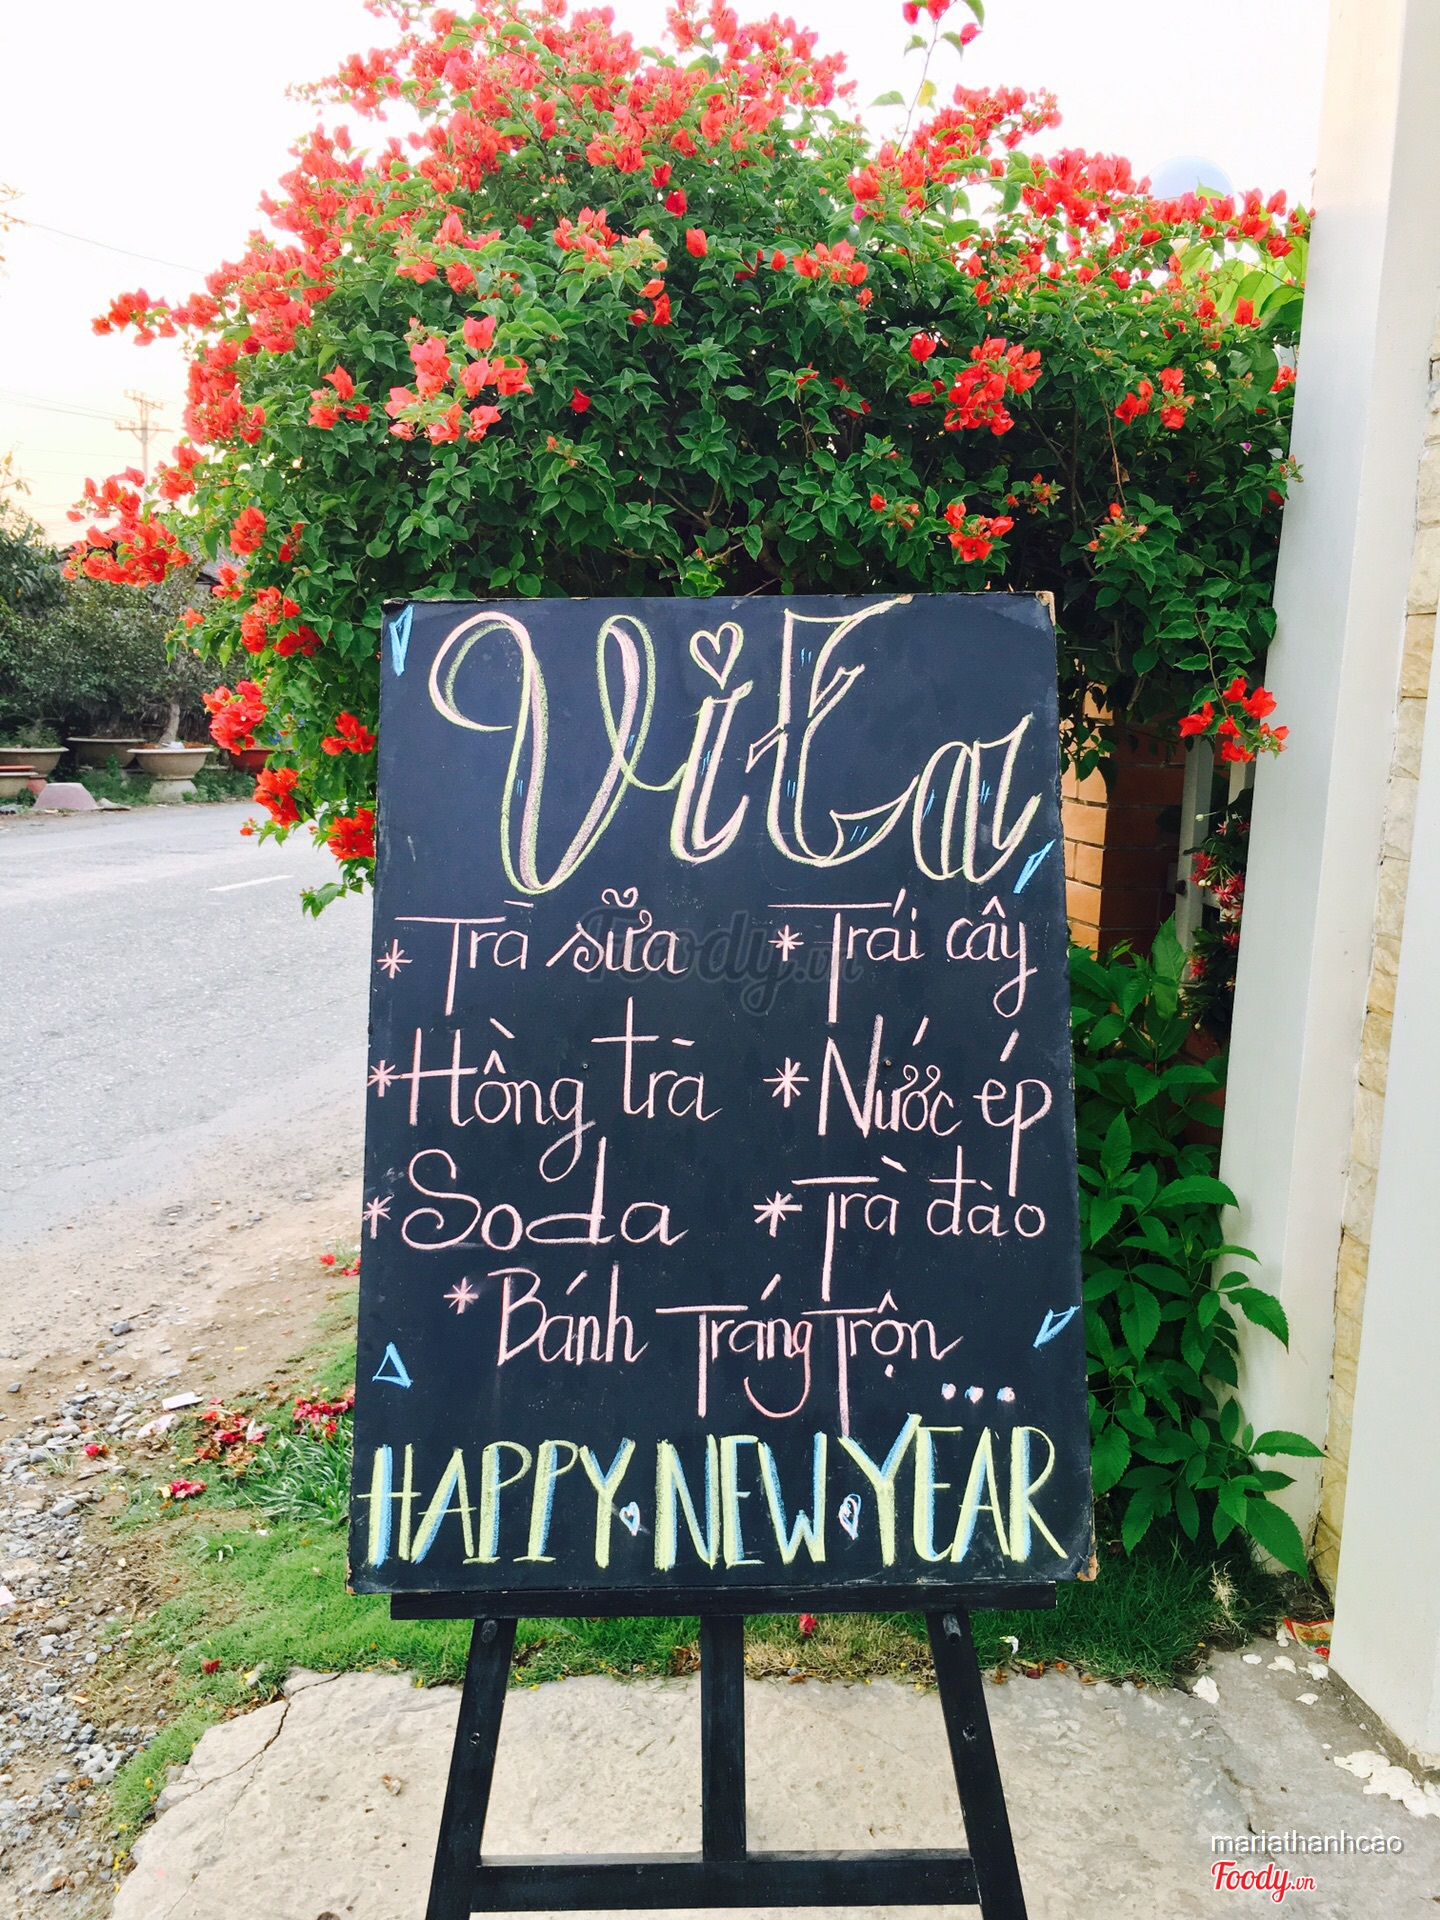 ViTa
* Trà sữa * Trái cây
* Hồng trà * Nước ép
* Soda * Trà đào
* Bánh Tráng Trộn ...
HAPPY NEW YEAR
Foody.vn
mariathanhcao
Foody.vn